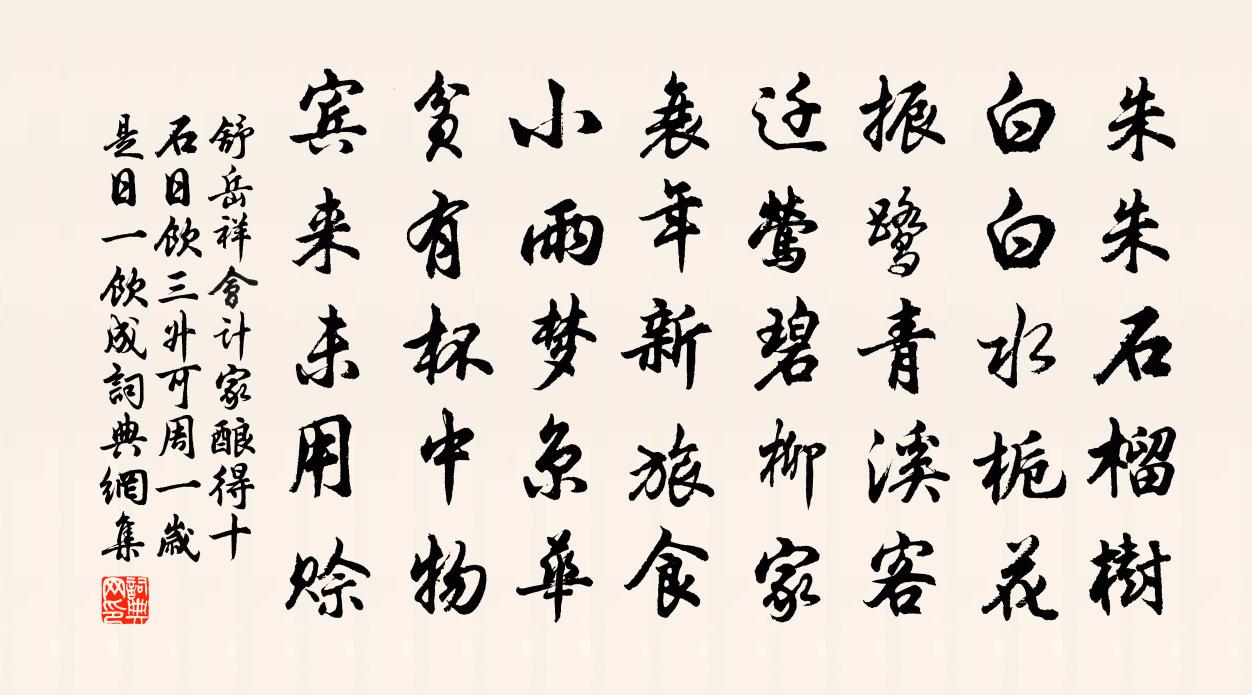 朱朱石榴樹
白白水栀花
振鹭青溪客
迁莺碧柳家
衰年新旅食
小雨梦京華
贫有杯中物
宾来未用赊
舒岳祥會计家酿得十
石日飲三升可周一歲
是日一飲成詞典網集
詞典
网印